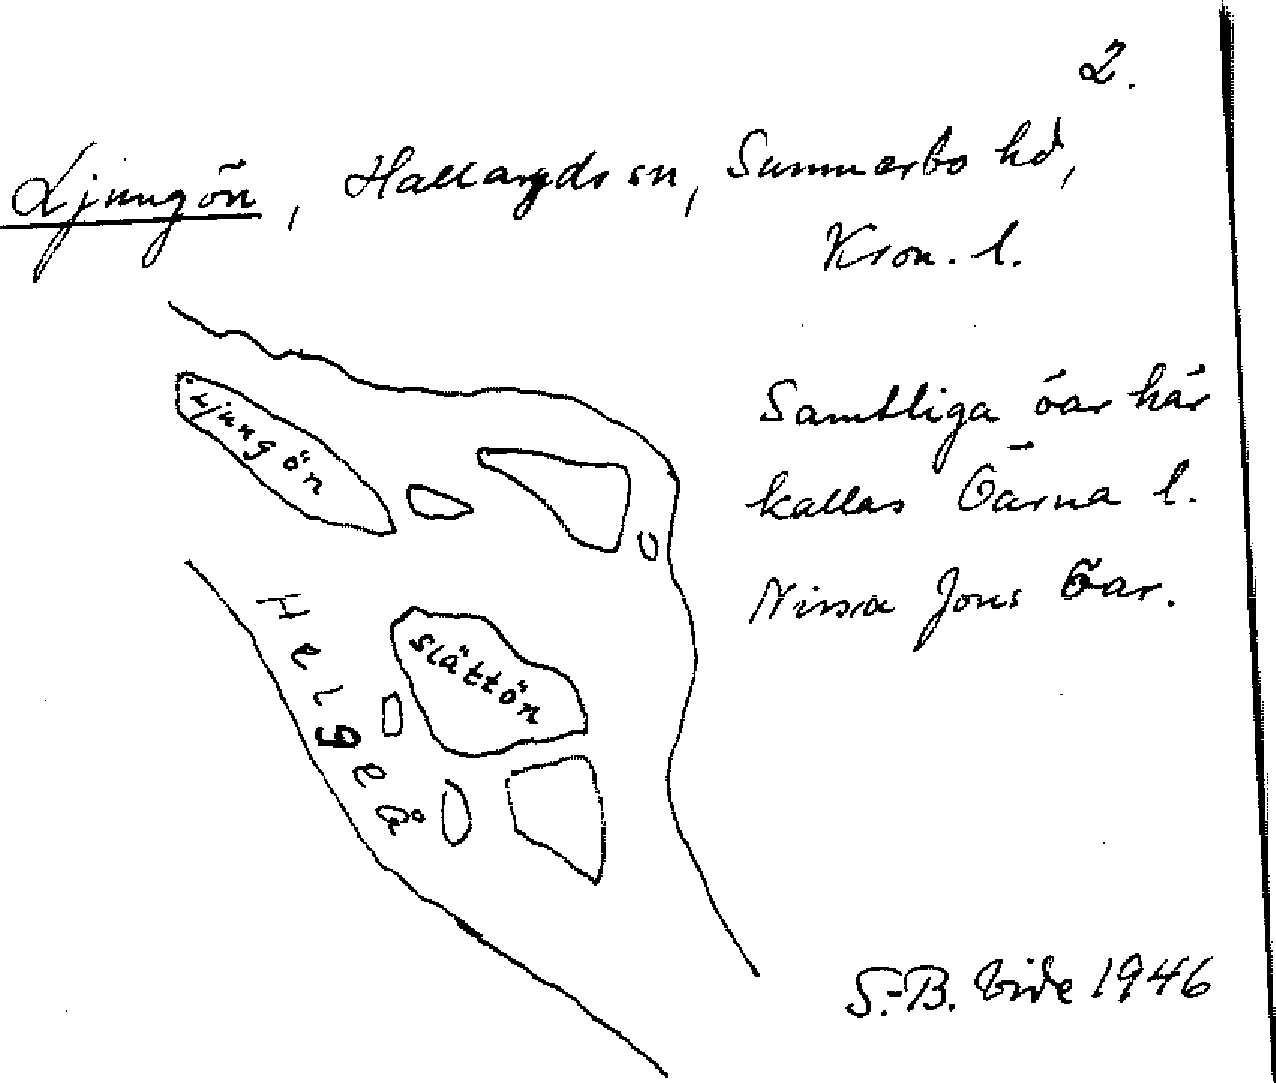 2.
Ljungön, Hallaryds sn, Sunnerbo hd,
Kron. l.
Ljungön
Samtliga öar här
kallas Öarna l.
Nissa Jons Öar.
Slättön
Helgeå
S.-B. Vide 1946